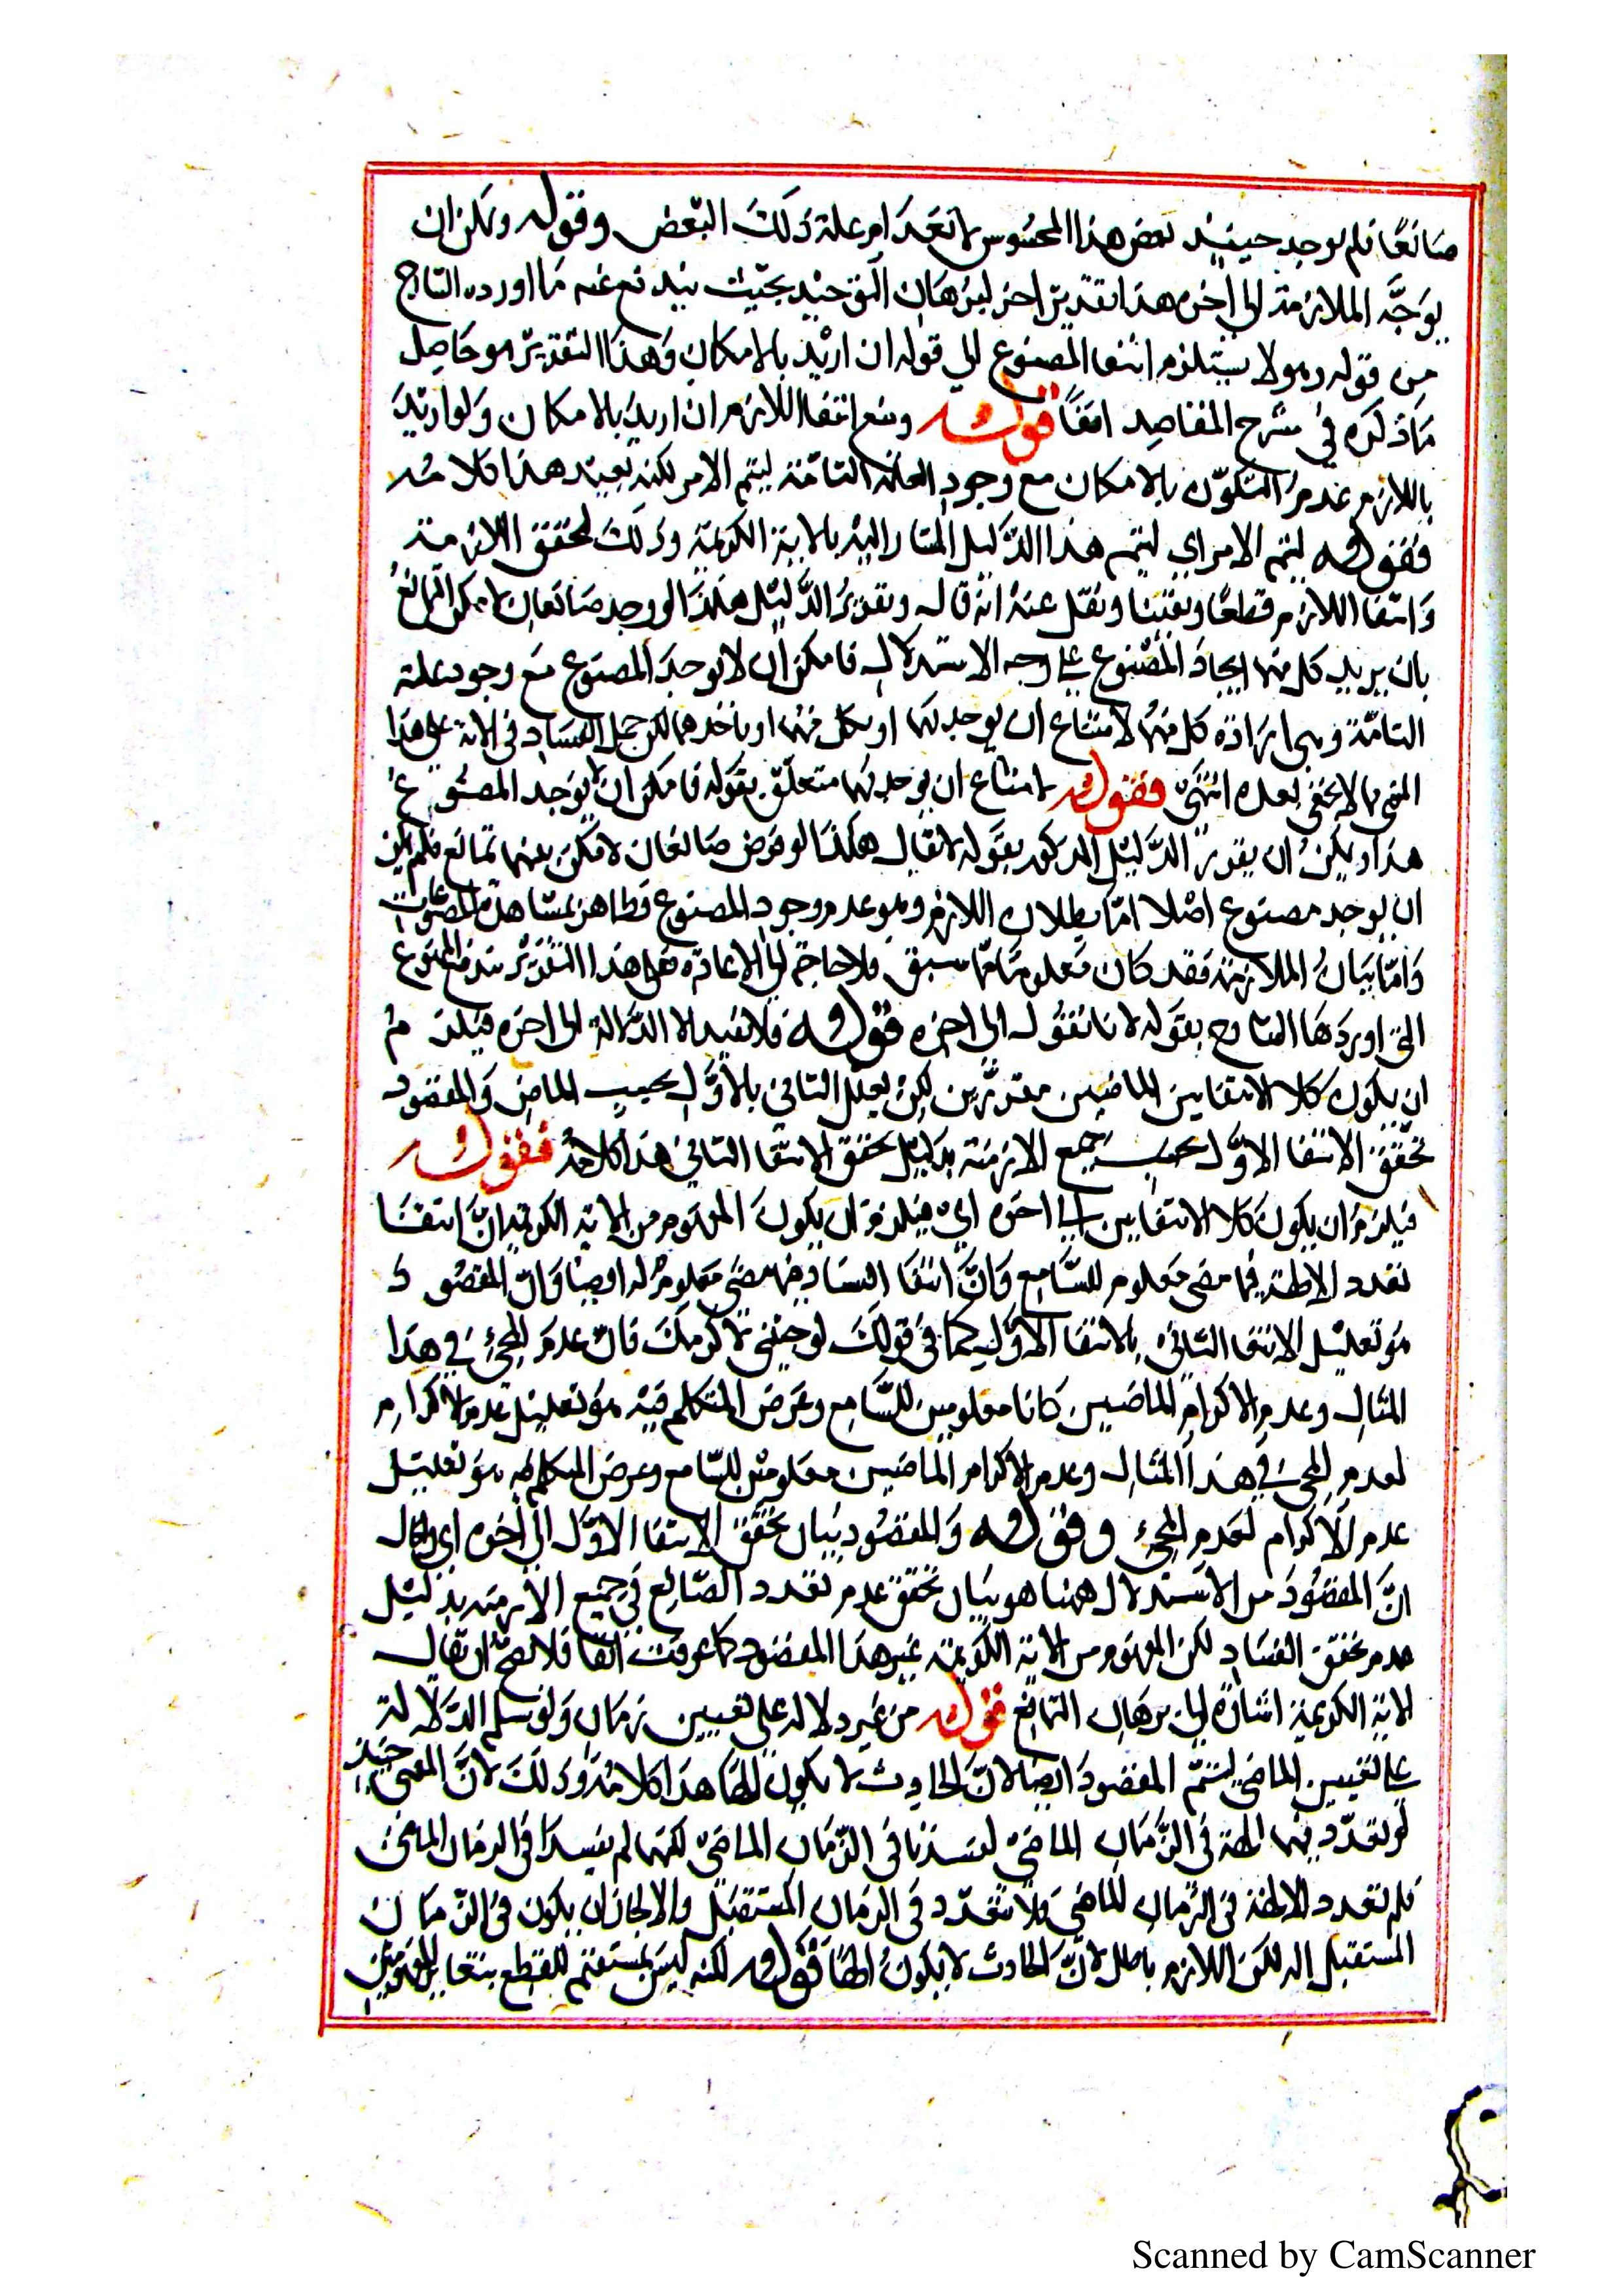 صانعًا فلم يوجد حينئذ بعض هذا المحسوس لانعدام علة ذلك البعض وقوله ويمكن ان
يوجّه الملازمة الى اخره هذا تقدير اخر لبرهان التمانع بحيث يندفع عنه ما اورده الشارح
من قوله وهو لا يستلزم انتفا المصنوع الى قوله ان اريد بالامكان وهذا التقدير هو حاصل
ما ذكره في شرح المقاصد ايضًا قوله ومنع انتفا اللازم ان اريد بالامكان ولو اريد
باللازم عدم التكوّن بالامكان مع وجود العلة التامّة ليتم الامر لكنه بعيد هذا كلامه
فقوله ليتم الامر اي ليتم هذا الدليل المشار اليه بالاية الكريمة وذلك لتحقق الملازمة
وانتفا اللازم قطعًا ويقينا ونقل عنه انه قال وتقرير الدليل هكذا لو وجد صانعان لامكن التمانع
بان يريد كل منهما ايجاد المصنوع على وجه الاستدلال فامكن ان لا يوجد المصنوع مع وجود علته
التامّة وهي ارادة كل منهما لامتناع ان يوجد بهما او بكل منهما او باحدهما لكن حمل الفساد في الاية على هذا
المعنى مما لا يخفى بعده انتهى فقوله لامتناع ان يوجد بهما متعلّق بقوله فامكن ان لا يوجد المصنوع
هذا ويمكن ان يقرر الدليل المذكور بقوله لا يقال هكذا لو فرض صانعان لامكن بينهما تمانع فلم يمكن
ان يوجد مصنوع اصلا امّا بطلان اللازم وهو عدم وجود المصنوع فظاهر بمشاهدة المصنوعات
وامّا بيان الملازمة فقد كان معلوما مما سبق فلا حاجة الى الاعادة فعلى هذا التقدير يندفع المنوع
التي اوردها الشارح بقوله لانا نقول الى اخره قوله فلا يفيد الا الدلالة الى اخره فيلزم
ان يكون كلا الانتفايين الماضيين مقررين لكن يعلل الثاني بالاول بحسب الماضي والمقصود
تحقق الانتفا الاول بحسب جميع الازمنة بدليل تحقق الانتفا الثاني هذا كلامه فقوله
فيلزم ان يكون كلا الانتفايين الى اخره اي فيلزم ان يكون المفهوم من الاية الكريمة ان انتفا
تعدد الالهة فيما مضى معلوم للسّامع وانّ انتفا الفساد فيما مضى معلوم له ايضا وانّ المقصود
هو تعليل الانتفا الثاني بالانتفا الاول كما في قولك لو جئتني لاكرمتك فانّ عدم المجئ في هذا
المثال وعدم الاكرام الماضيين كانا معلومين للسّامع وغرض المتكلم فيه هو تعليل عدم الاكرام
لعدم المجئ في هذا المثال وعدم الاكرام الماضيين معلومين للسّامع وغرض المتكلم فيه هو تعليل
عدم الاكرام لعدم المجئ وقوله والمقصود بيان تحقق الانتفا الاول الى اخره اي والحال
انّ المقصود من الاستدلال ههنا هو بيان تحقق عدم تعدد الصّانع في جميع الازمنة بدليل
عدم تحقق الفساد لكن المفهوم من الاية الكريمة غير هذا المقصود كما عرفت انفًا فلا يصح ان يقال
الاية الكريمة اشارة الى برهان التمانع قوله من غير دلالة على تعيين زمان ولو سلم الدلالة
على تعيين الماضي ليتم المقصود ايضا لانّ الحادث لا يكون الها هذا كلامه وذلك لانّ المعنى حينئذ
لو تعدّد فيهما الهة في الزّمان الماضي لفسدتا في الزّمان الماضي لكنهما لم يفسدا في الزمان الماضي
فلم تعدد الالهة في الزمان الماضي ولا تتعدّد في الزمان المستقبل والا لجاز ان يكون في الزمان
المستقبل اله لكن اللازم باطل لانّ الحادث لا يكون الهًا قوله لكنه ليس بمستقيم للقطع بتغاير المفهومين
Scanned by CamScanner